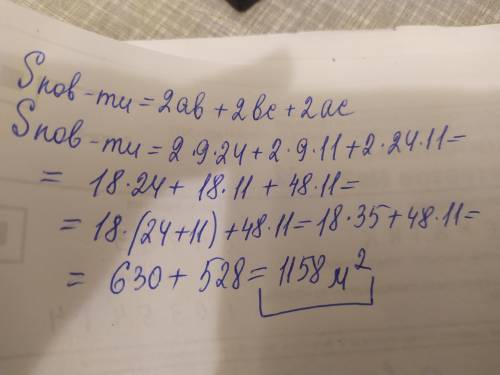 Sпов-ти = 2ab + 2bc + 2ac
Sпов-ти = 2·9·24 + 2·9·11 + 2·24·11 =
= 18·24 + 18·11 + 48·11 =
= 18·(24+11) + 48·11 = 18·35 + 48·11 =
= 630 + 528 = 1158 м²